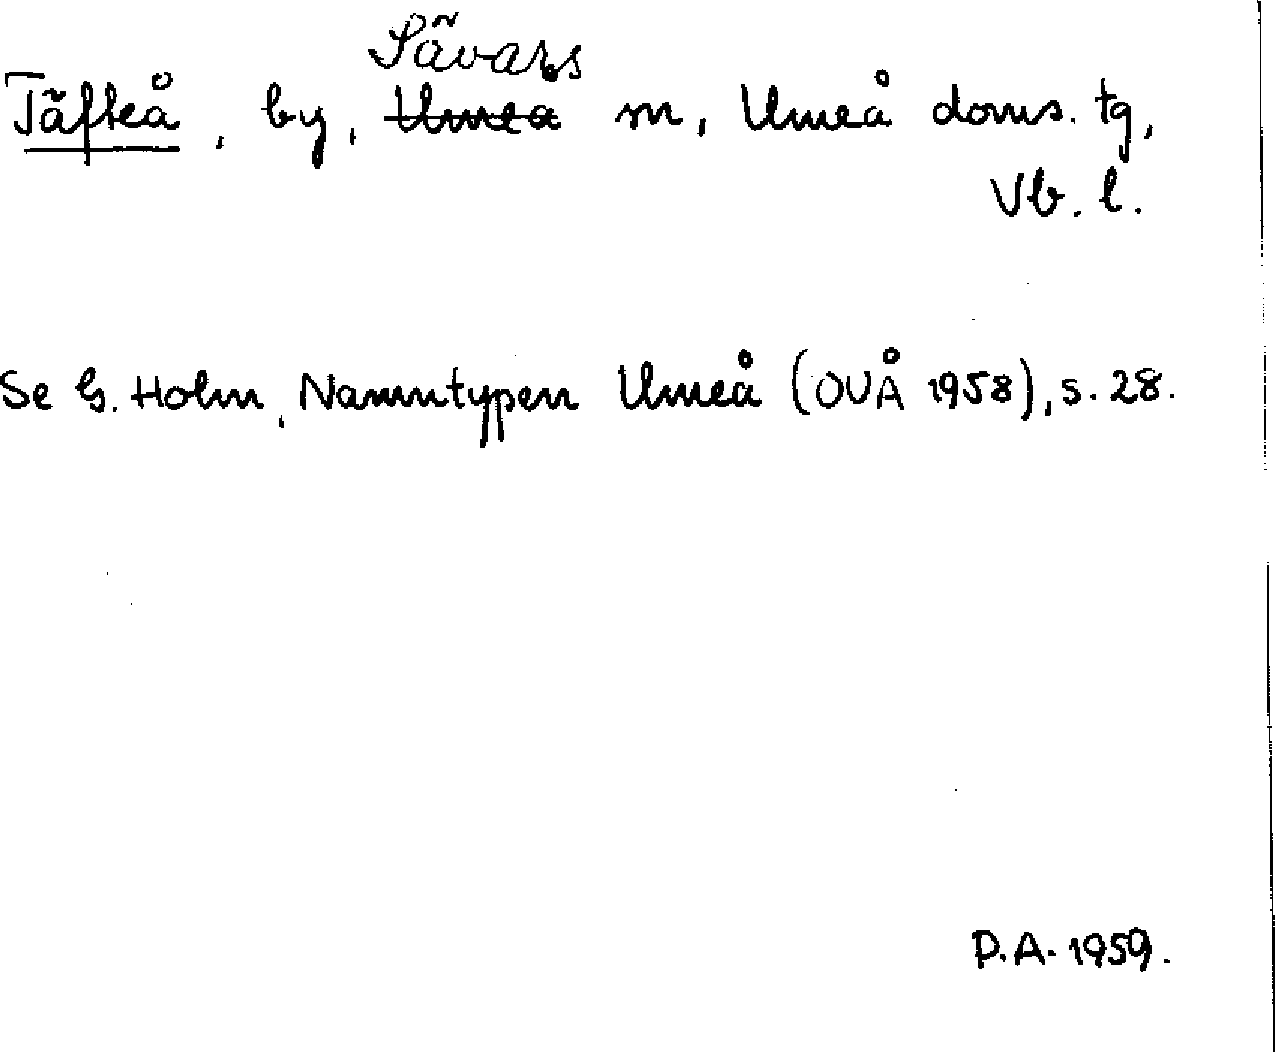 Sävars
Täfteå, by, Umeå m, Umeå doms. tg,
Vb. l.
Se G. Holm, Namntypen Umeå (OUÅ 1958), s. 28.
P.A. 1959.